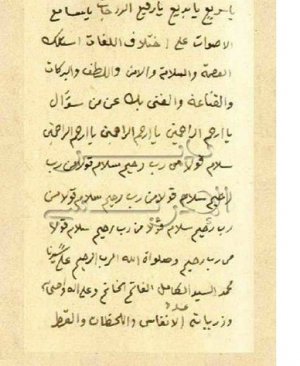 يا سريع يا بديع يا رفيع الدرجات يا سامع
الاصوات على اختلاف اللغات اسئلك
العصمة والسلامة والامن واللطف والبركات
والقناعة والغنى بك عن من سؤال
يا ارحم الراحمين يا ارحم الراحمين يا ارحم الراحمين
سلام قولا من رب رحيم سلام قولا من رب
رحيم سلام قولا من رب رحيم سلام قولا من
رب رحيم سلام قولا من رب رحيم سلام قولا
من رب رحيم وصلواة الله الرب الرحيم على سيدنا
محمد السيد الكامل الفاتح الخاتم وعلى اله وصحبه
وذرياته عدد الانفاس واللحظات والقطر